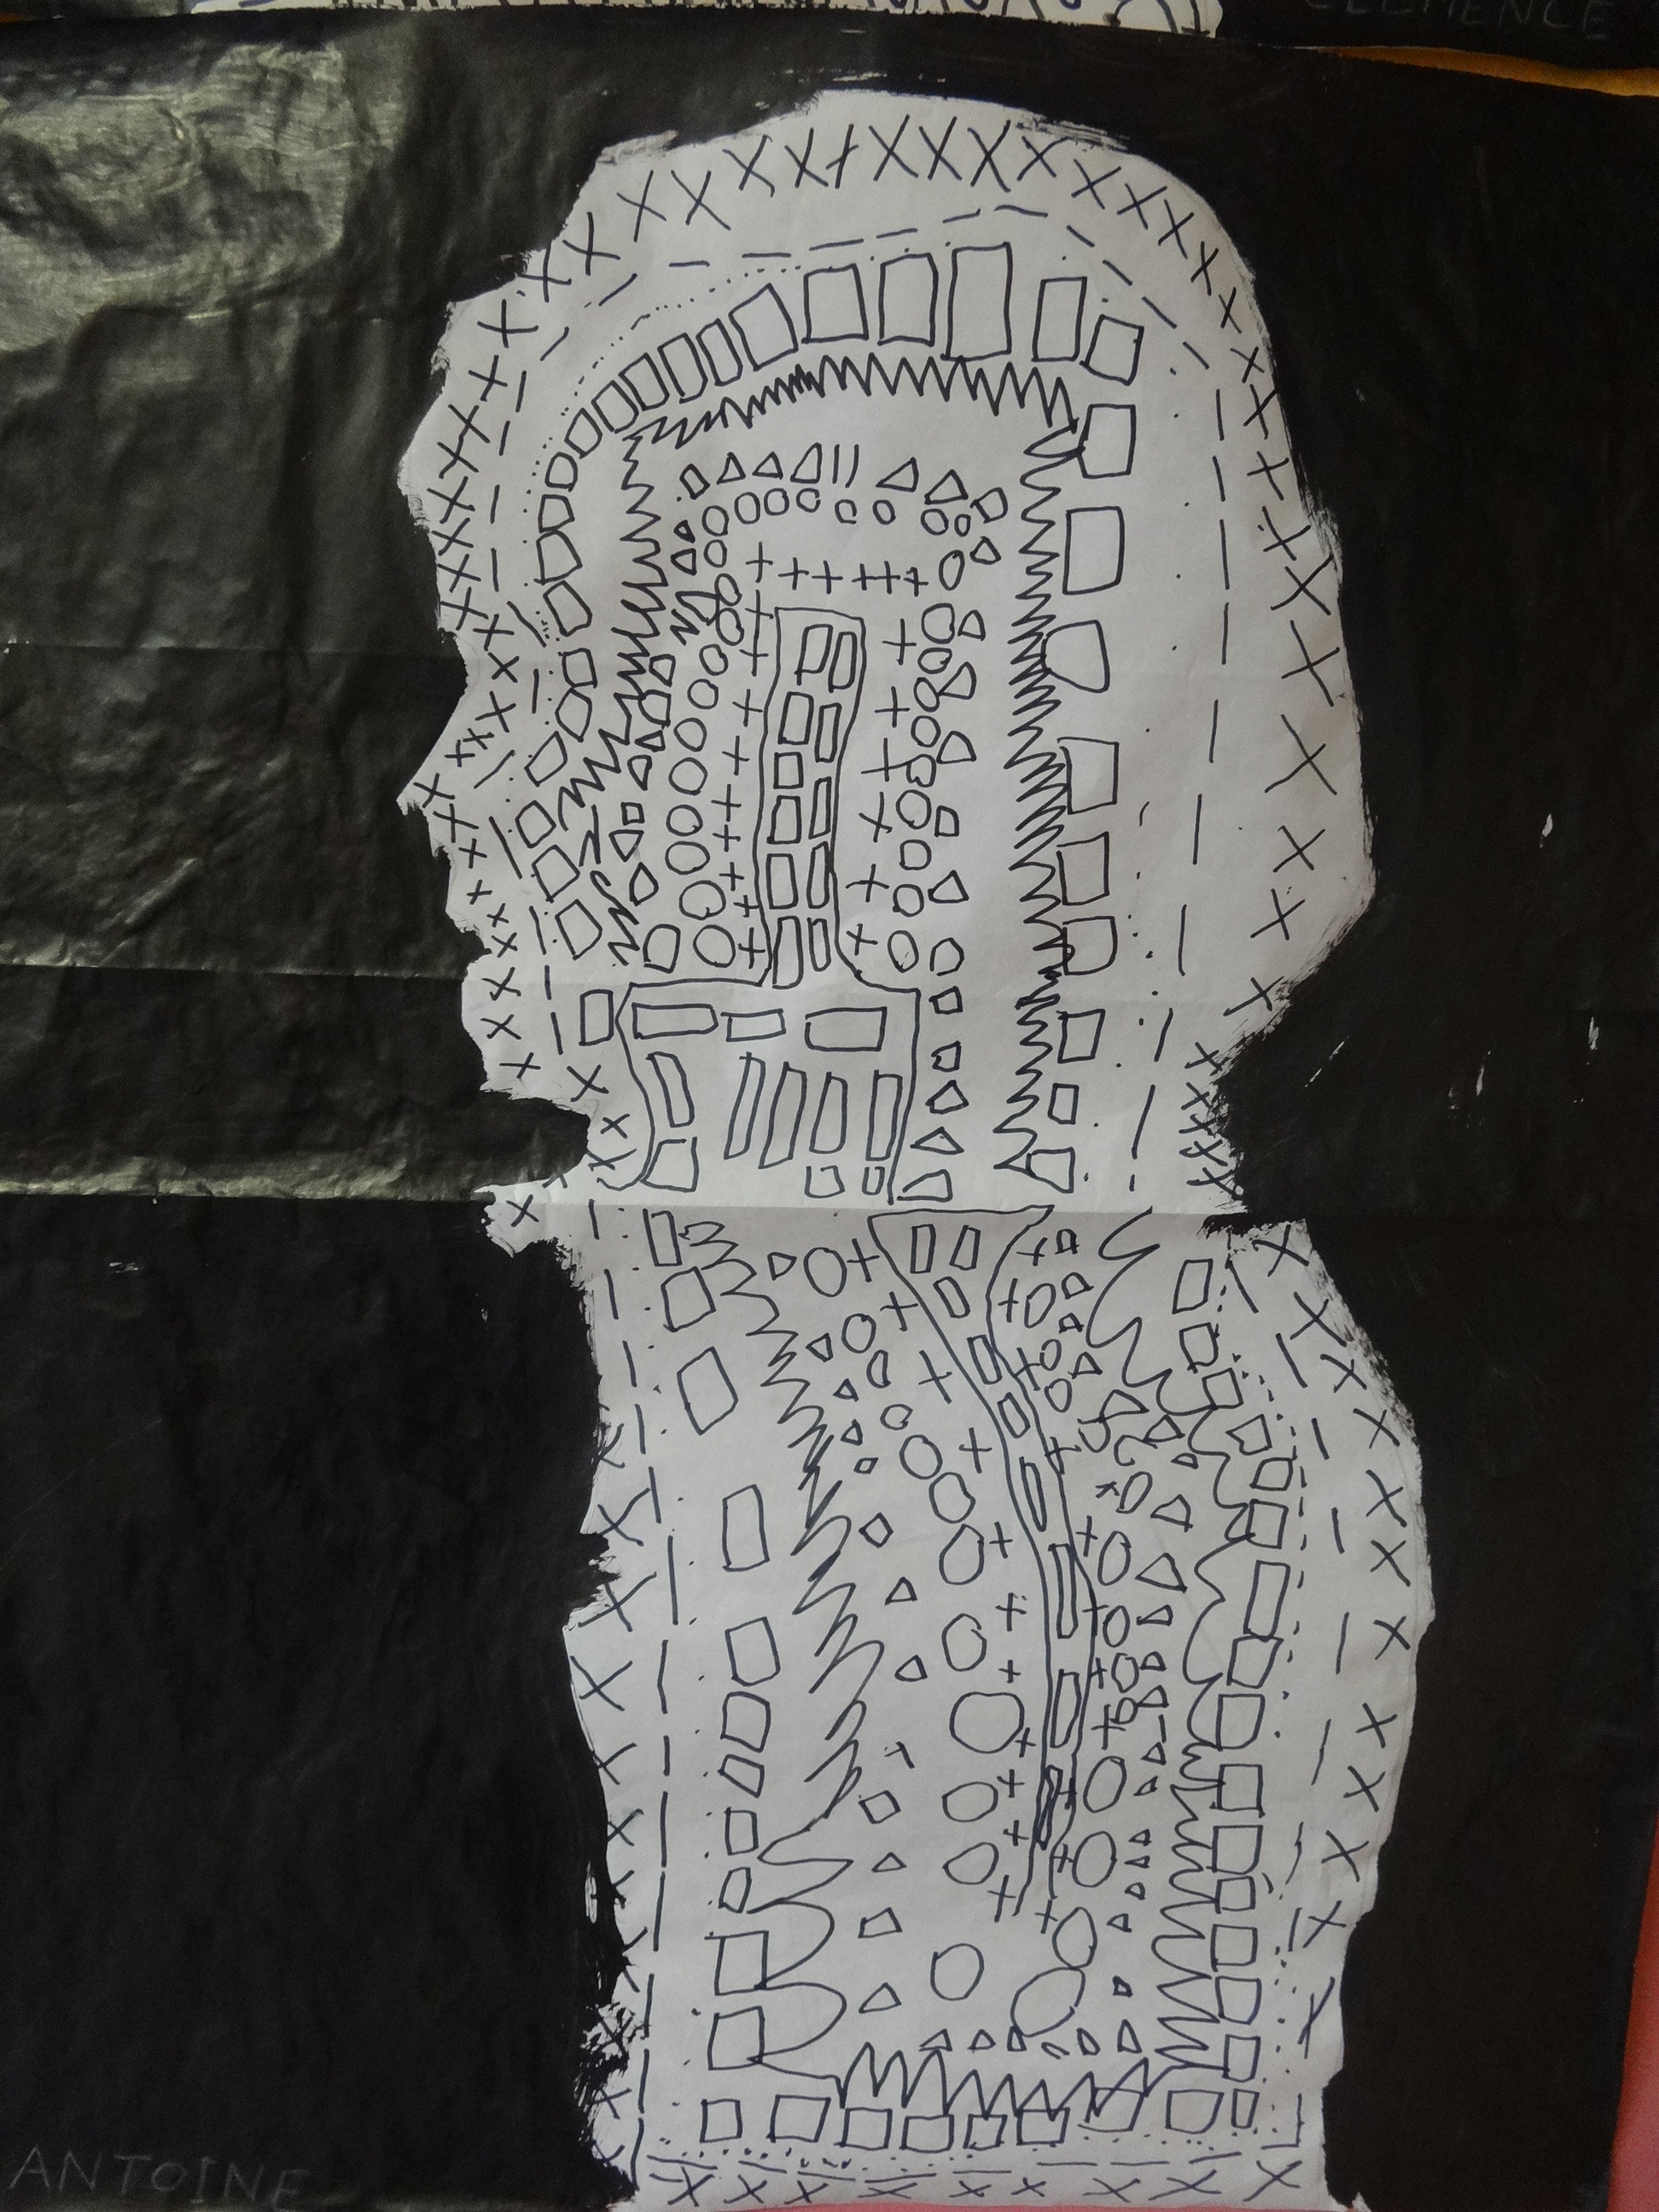 CLEMENCE
ANTOINE